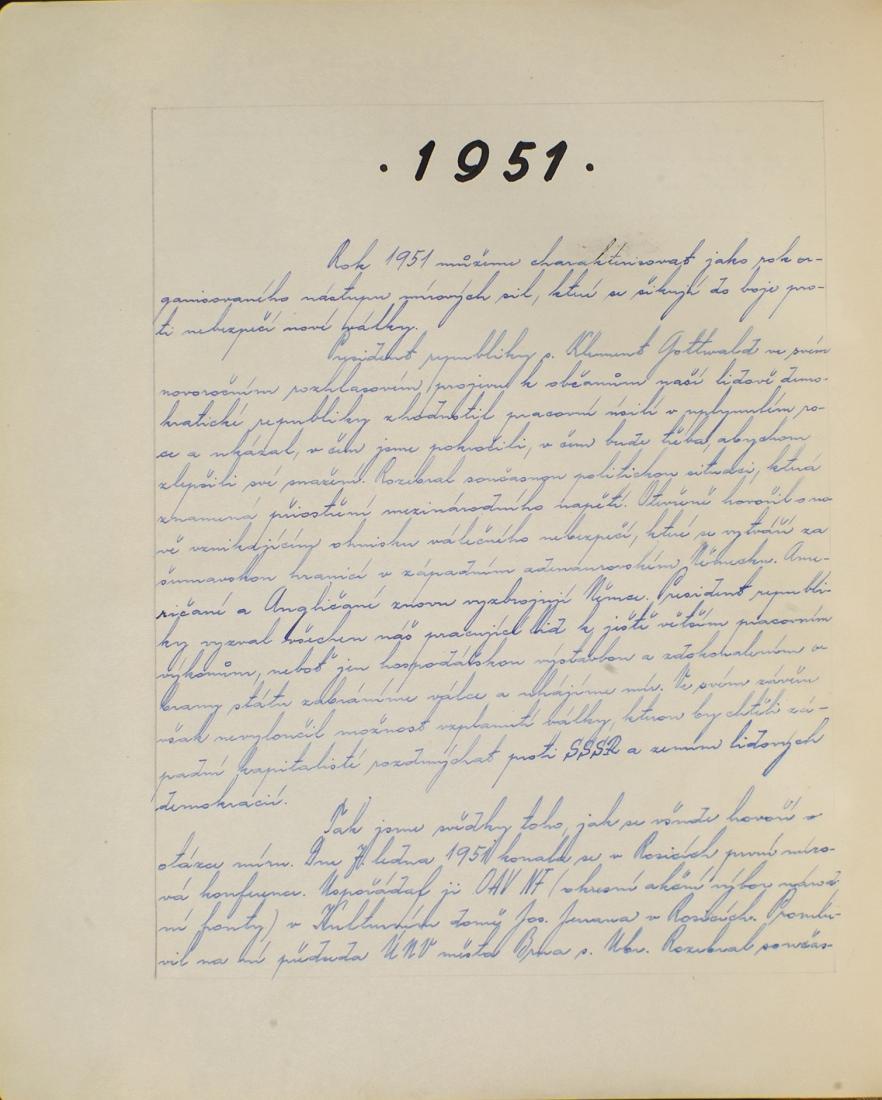 · 1951 ·
Rok 1951 můžeme charakterisovat jako rok or-
ganisovaného nástupu mírových sil, které se šikují do boje pro-
ti nebezpečí nové války.
President republiky s. Klement Gottwald ve svém
novoročním rozhlasovém projevu k občanům naší lidově demo-
kratické republiky zhodnotil pracovní úsilí v uplynulém ro-
ce a ukázal, v čem jsme pokročili, v čem bude třeba, abychom
zlepšili své snažení. Rozebral současnou politickou situaci, která
znamená přiostření mezinárodního napětí. Otevřeně hovořil o no
vě vznikajícím ohnisku válečného nebezpečí, které se vytváří za
šumavskou hranicí v západním adenaurovském Německu. Ame-
ričané a Angličané znovu vyzbrojují Němce. President republi-
ky vyzval všechen náš pracující lid k ještě větším pracovním
výkonům, neboť jen hospodářskou výstavbou a zdokonalením o
brany státu zabráníme válce a uhájíme mír. Ve svém závěru
však nevyloučil možnost vzplanutí války, kterou by chtěli zá-
padní kapitalisté rozdmýchat proti SSSR a zemím lidových
demokracií.
Tak jsme svědky toho, jak se všude hovoří o
otázce míru. Dne 7. ledna 1951 konala se v Rosicích první míro-
vá konference. Uspořádal ji OAV NF (okresní akční výbor národ
ní fronty) v Kulturním domě Jos. Jurana v Rosicích. Promlu-
vil na ní předseda ÚNV města Brna s. Ubr. Rozebral součas-